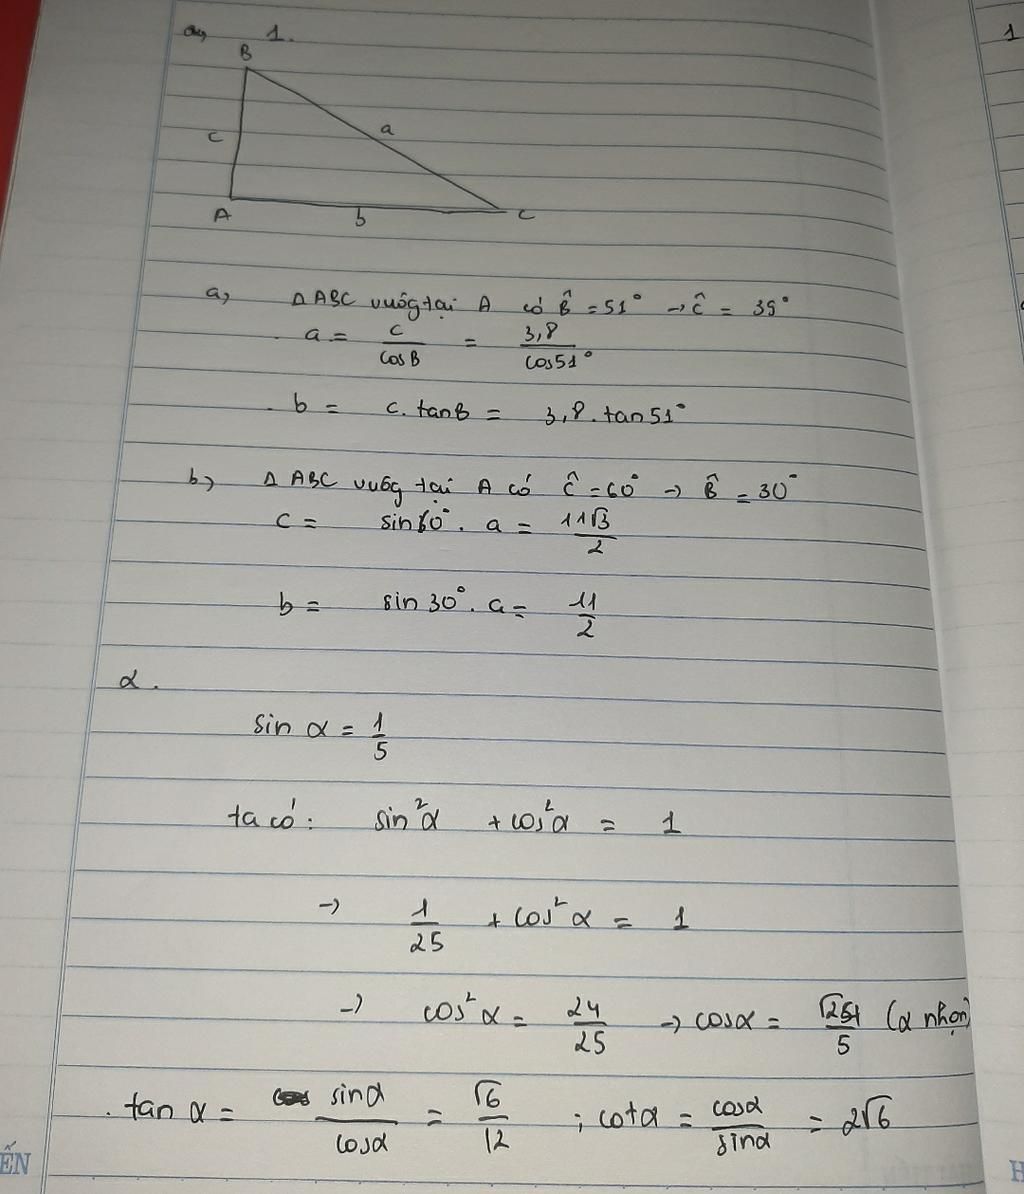 a, 1.
B
c a
A b C
a, Δ ABC vuôg tại A có B̂ = 51° → Ĉ = 39°
a = c/cosB = 3,8/cos51°
. b = c. tanB = 3,8. tan51°
b, Δ ABC vuôg tại A có Ĉ = 60° → B̂ = 30°
c = sin60°. a = 11√3/2
b = sin 30°. a = 11/2
2.
sin α = 1/5
ta có: sin²α + cos²α = 1
→ 1/25 + cos²α = 1
→ cos²α = 24/25 → cosα = /5 (α nhọn)
. tan α = sinα/cosα = √6/12 ; cotα = cosα/sinα = 2√6
ẾN H
1